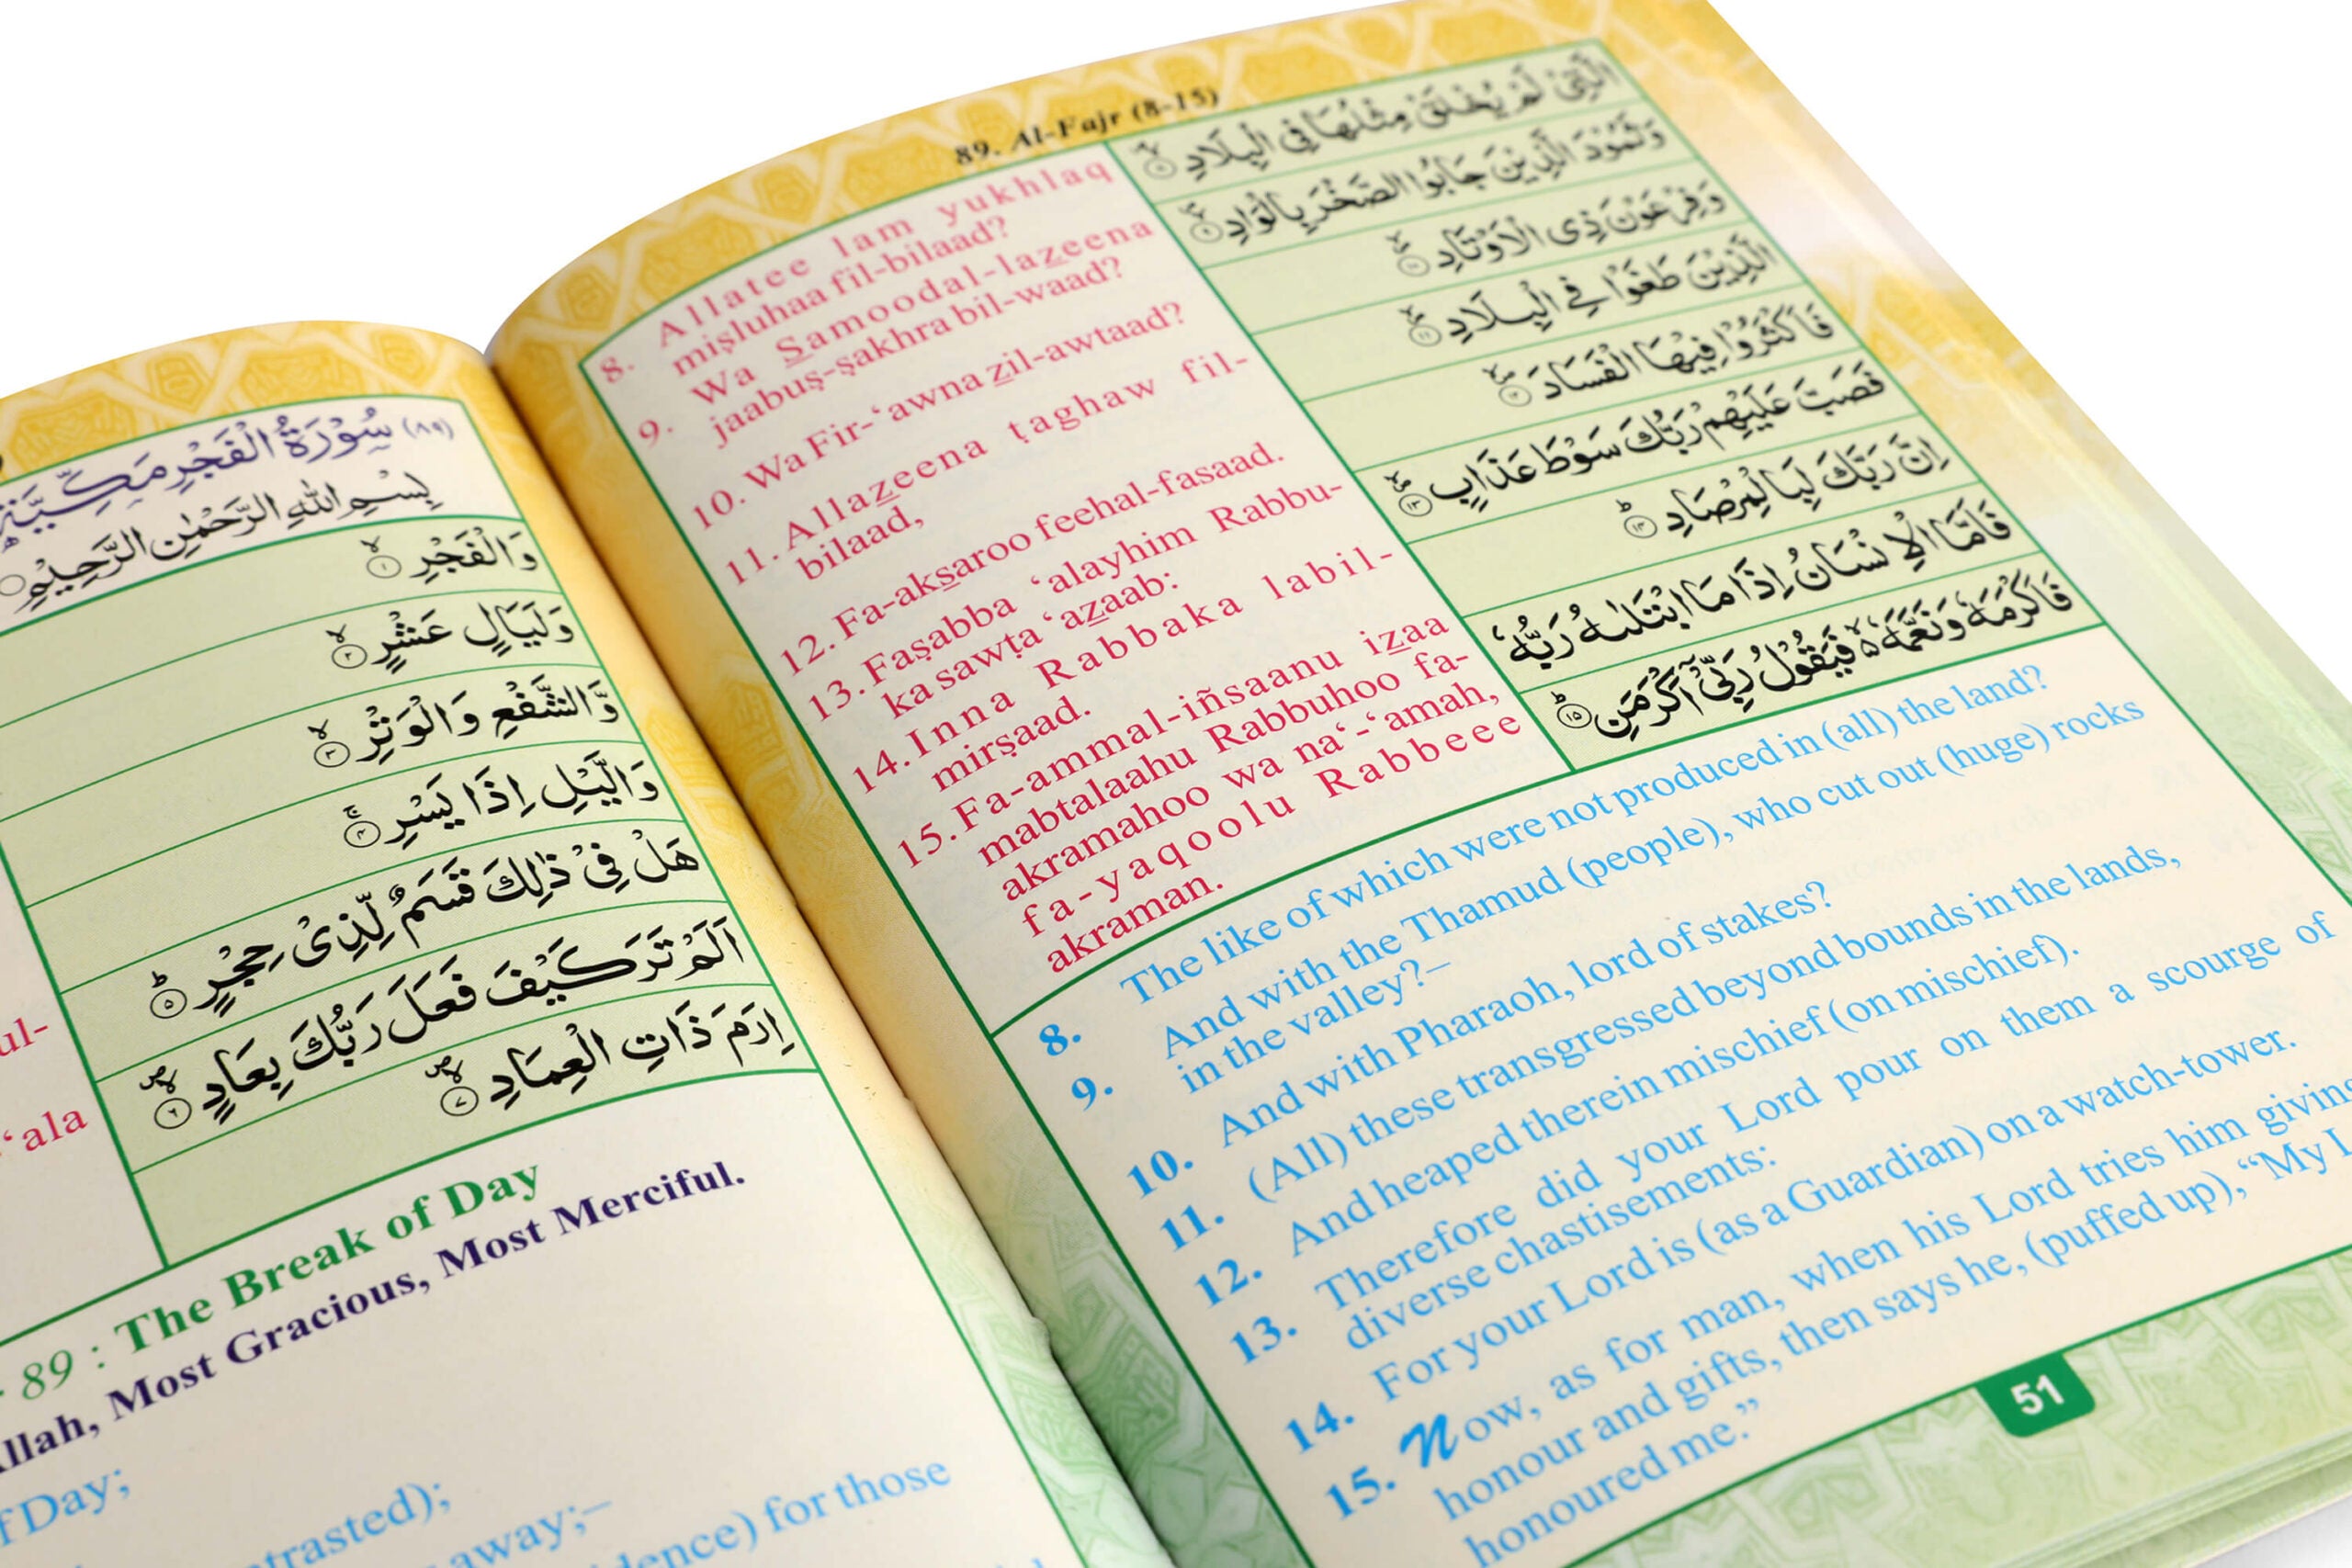 سُوْرَةُ الْفَجْرِ مَكِّيَّةٌ (٨٩)
بِسْمِ اللّٰهِ الرَّحْمٰنِ الرَّحِيْمِ
وَالْفَجْرِ ۙ١
وَلَيَالٍ عَشْرٍ ۙ٢
وَّالشَّفْعِ وَالْوَتْرِ ۙ٣
وَالَّيْلِ اِذَا يَسْرِ ۚ٤
هَلْ فِيْ ذٰلِكَ قَسَمٌ لِّذِيْ حِجْرٍ ؕ٥
اَلَمْ تَرَ كَيْفَ فَعَلَ رَبُّكَ بِعَادٍ ۙ٦
اِرَمَ ذَاتِ الْعِمَادِ ۙ٧
ul-
‘ala
89 : The Break of Day
Allah, Most Gracious, Most Merciful.
f Day;
trasted);
away;–
dence) for those
89. Al-Fajr (8-15)
8. Allatee lam yukhlaq
miṣluhaa fil-bilaad?
9. Wa Samoodal-lazeena
jaabuṣ-ṣakhra bil-waad?
10. Wa Fir-‘awna zil-awtaad?
11. Allazeena ṭaghaw fil-
bilaad,
12. Fa-aksaroo feehal-fasaad.
13. Faṣabba ‘alayhim Rabbu-
ka sawṭa ‘azaab:
14. Inna Rabbaka labil-
mirṣaad.
15. Fa-ammal-iñsaanu izaa
mabtalaahu Rabbuhoo fa-
akramahoo wa na‘-‘amah,
fa-yaqoolu Rabbeee
akraman.
الَّتِيْ لَمْ يُخْلَقْ مِثْلُهَا فِي الْبِلَادِ ۙ٨
وَثَمُوْدَ الَّذِيْنَ جَابُوا الصَّخْرَ بِالْوَادِ ۙ٩
وَفِرْعَوْنَ ذِى الْاَوْتَادِ ۙ١٠
الَّذِيْنَ طَغَوْا فِي الْبِلَادِ ۙ١١
فَاَكْثَرُوْا فِيْهَا الْفَسَادَ ۙ١٢
فَصَبَّ عَلَيْهِمْ رَبُّكَ سَوْطَ عَذَابٍ ۙ١٣
اِنَّ رَبَّكَ لَبِالْمِرْصَادِ ؕ١٤
فَاَمَّا الْاِنْسَانُ اِذَا مَا ابْتَلٰىهُ رَبُّهٗ
فَاَكْرَمَهٗ وَنَعَّمَهٗ ۙ۬ فَيَقُوْلُ رَبِّيْٓ اَكْرَمَنِ ؕ١٥
8. The like of which were not produced in (all) the land?
9. And with the Thamud (people), who cut out (huge) rocks
in the valley?–
10. And with Pharaoh, lord of stakes?
11. (All) these transgressed beyond bounds in the lands,
12. And heaped therein mischief (on mischief).
13. Therefore did your Lord pour on them a scourge of
diverse chastisements:
14. For your Lord is (as a Guardian) on a watch-tower.
15. Now, as for man, when his Lord tries him giving
honour and gifts, then says he, (puffed up), “My L
honoured me.”
51